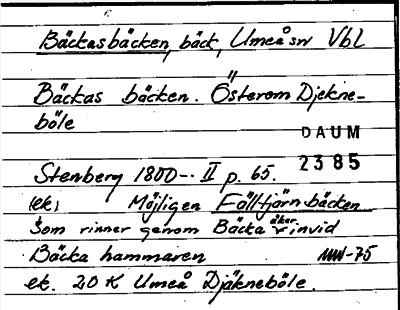 Bäckasbäcken, bäck, Umeå sn Vbl
Bäckas bäcken. Österom Djekne-
böle
DAUM
2385
Stenberg 1800-. II p. 65.
(ek) Möjligen Fälltjärnbäcken
Som rinner genom Bäcka åker invid
Bäcka hammaren MW-75
ek. 20 K Umeå Djäkneböle.